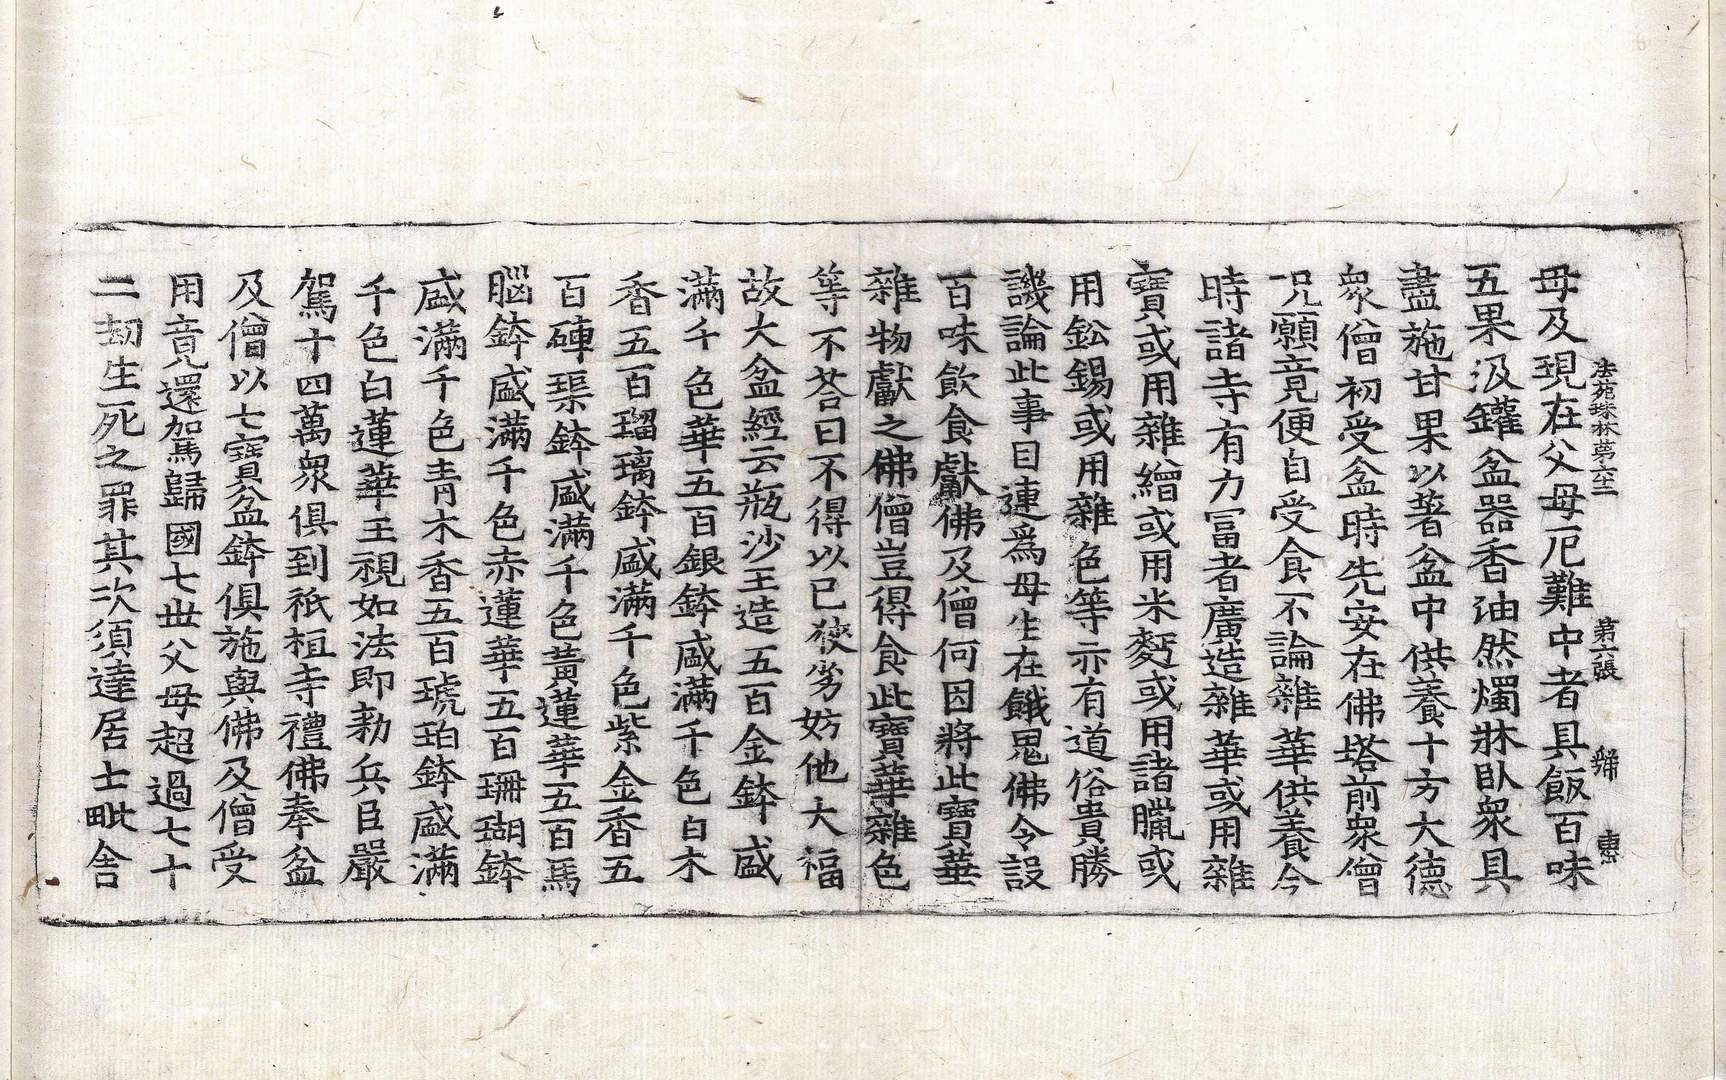 法苑珠林第六十二 第六張 歸 惠
母及現在父母厄難中者具飯百味
五果汲鑵盆器香油然燭牀臥衆具
盡施甘果以著盆中供養十方大德
衆僧初受盆時先安在佛塔前衆僧
呪願竟便自受食不論雜華供養今
時諸寺有力冨者廣造雜華或用雜
寶或用雜繒或用米麵或用諸臘或
用鈆錫或用雜色等亦有道俗貴勝
譏論此事目連爲母生在餓鬼佛令設
百味飲食獻佛及僧何因將此寶華
雜物獻之佛僧豈得食此寶華雜色
等不荅曰不得以已狹劣妨他大福
故大盆經云瓶沙王造五百金鉢盛
滿千色華五百銀鉢盛滿千色白木
香五百瑠璃鉢盛滿千色紫金香五
百硨磲鉢盛滿千色黃蓮華五百馬
腦鉢盛滿千色赤蓮華五百珊瑚鉢
盛滿千色青木香五百琥珀鉢盛滿
千色白蓮華王視如法即勑兵臣嚴
駕十四萬衆俱到祇桓寺禮佛奉盆
及僧以七寶盆鉢俱施與佛及僧受
用竟還駕歸國七世父母超過七十
二劫生死之罪其次須達居士毗舍